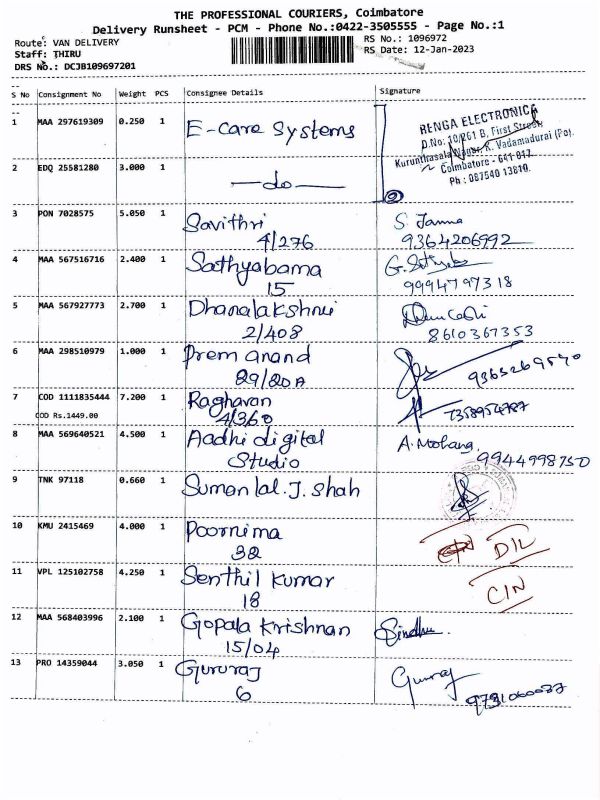 THE PROFESSIONAL COURIERS, Coimbatore
Delivery Runsheet - PCM - Phone No.:0422-3505555 - Page No.:1
Route: VAN DELIVERY RS No.: 1096972
Staff: THIRU RS Date: 12-Jan-2023
DRS No.: DCJB109697201
S No Consignment No Weight PCS Consignee Details Signature
1 MAA 297619309 0.250 1 E-Care Systems
RENGA ELECTRONICS
D.No: 10/261 B, First Street,
Kurunthasala Nagar, K. Vadamadurai (Po).
Coimbatore - 641 017.
Ph : 087540 13810.
2 EDQ 25581280 3.000 1 —do— 2
3 PON 7028575 5.050 1 Savithri S.
4/276 9364206992
4 MAA 567516716 2.400 1 Sathyabama
15 9994797318
5 MAA 567927773 2.700 1 Dhanalakshmi
2/408 8610367353
6 MAA 298510979 1.000 1 Prem anand
29/20A
7 COD 1111835444 7.200 1 Raghavan
COD Rs.1449.00 4/360 7358954787
8 MAA 569640521 4.500 1 Aadhi digital A. Mohang
Studio 9944998750
9 TNK 97118 0.660 1 Sumanlal.J.Shah
10 KMU 2415469 4.000 1 Poornima D/L
32
11 VPL 125102758 4.250 1 Senthil Kumar C/N
18
12 MAA 568403996 2.100 1 Gopala Krishnan Sindhu.
15/04
13 PRO 14359044 3.050 1 Gururaj Gururaj
6